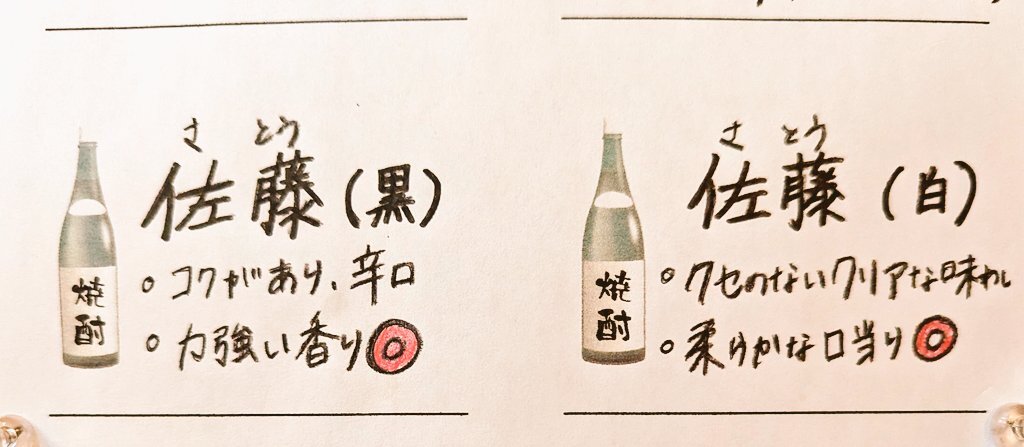 さとう
佐藤(黒)
・コクがあり、辛口
・力強い香り◎
焼酎
さとう
佐藤(白)
・クセのないクリアな味わい
・柔らかな口当り◎
焼酎